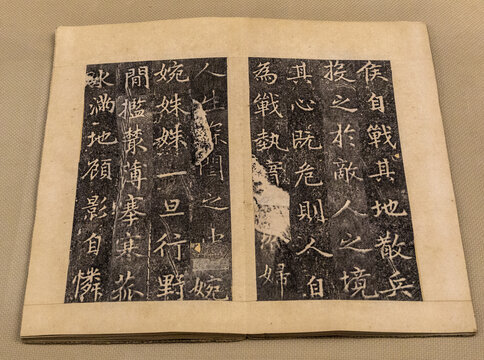 侯自戰其地散兵
投之於敵人之境
其心既危則人自
為戰執 婦
人生 之 婉
婉姝姝一旦行野
間攬叢薄塞寒菰
水滿地顧影自憐